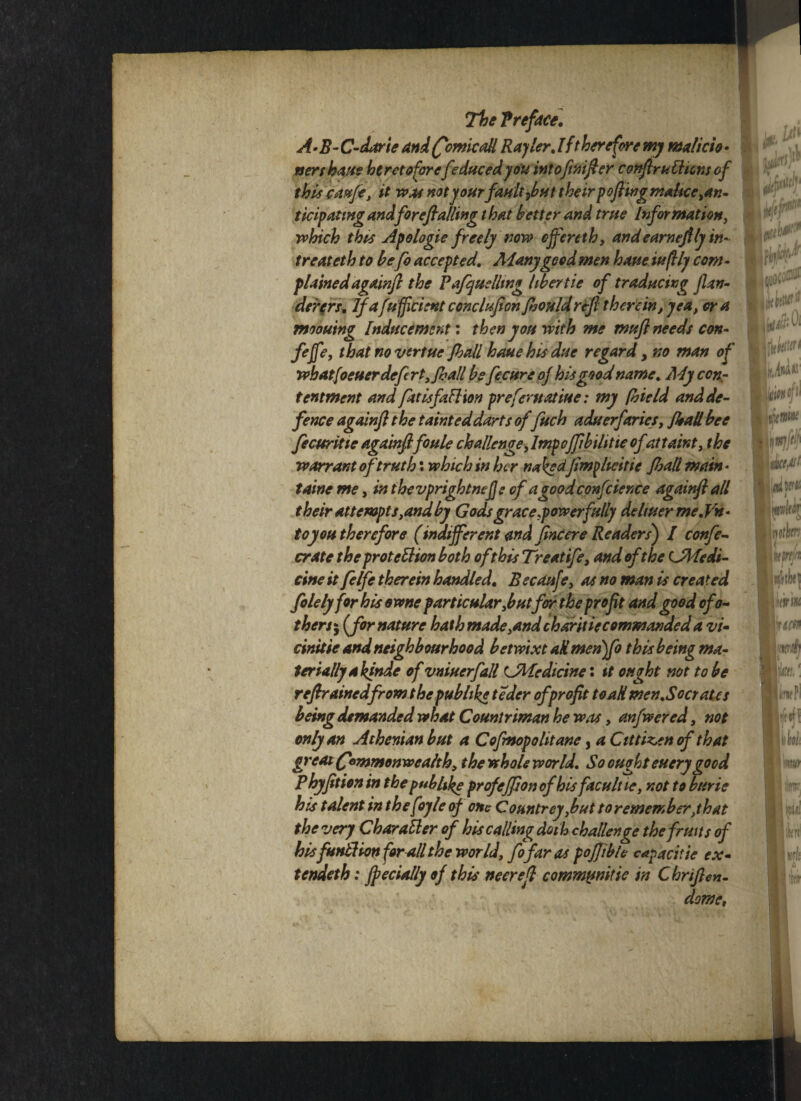 The Preface.
A-B-C-darie and Comicall Rayler. If therefore my malicio-
ners haue heretofore seduced you into sinister constructions of
this cause, it was not your fault, but their posting malice, an-
ticipating and forestalling that better and true Information,
which this Apologie freely now offereth, and earnestly in-
treateth to be so accepted. Many good men haue iustly com-
plained against the Pasquelling libertie of traducing slan-
derers. If a sufficient conclusion should rest therein, yea, or a
moouing Inducement: then you with me must needs con-
fesse, that no vertue shall haue his due regard, no man of
whatsoeuer desert, shall be secure of his good name. My con-
tentment and satisfaction preseruatiue: my shield and de-
fence against the tainted darts of such aduersaries, shall bee
securitie against foule challenge, Impossibilitie of attaint, the
warrant of truth: which in her naked simplicitie shall main-
taine me, in the vprightnesse of a good conscience against all
their attempts, and by Gods grace, powerfully deliuer me. Vn-
to you therefore (indifferent and sincere Readers) I conse-
crate the protection both of this Treatise, and of the Medi-
cine it selfe therein handled. Because, as no man is created
solely for his owne particular, but for the profit and good of o-
thers; (for nature hath made, and charitie commanded a vi-
cinitie and neighbourhood betwixt all men) so this being ma-
terially a kinde of vniuersall Medicine: it ought not to be
restrained from the publike teder of profit to all men. Socrates
being demanded what Countriman he was, answered, not
only an Athenian but a Cosmopolitane, a Cittizen of that
great Commonwealth, the whole world. So ought euery good
Physition in the publike profession of his facultie, not to burie
his talent in the soyle of one Countrey, but to remember, that
the very Character of his calling doth challenge the fruits of
his function for all the world, so far as possible capacitie ex-
tendeth: specially of this neerest communitie in Christen-
dome,